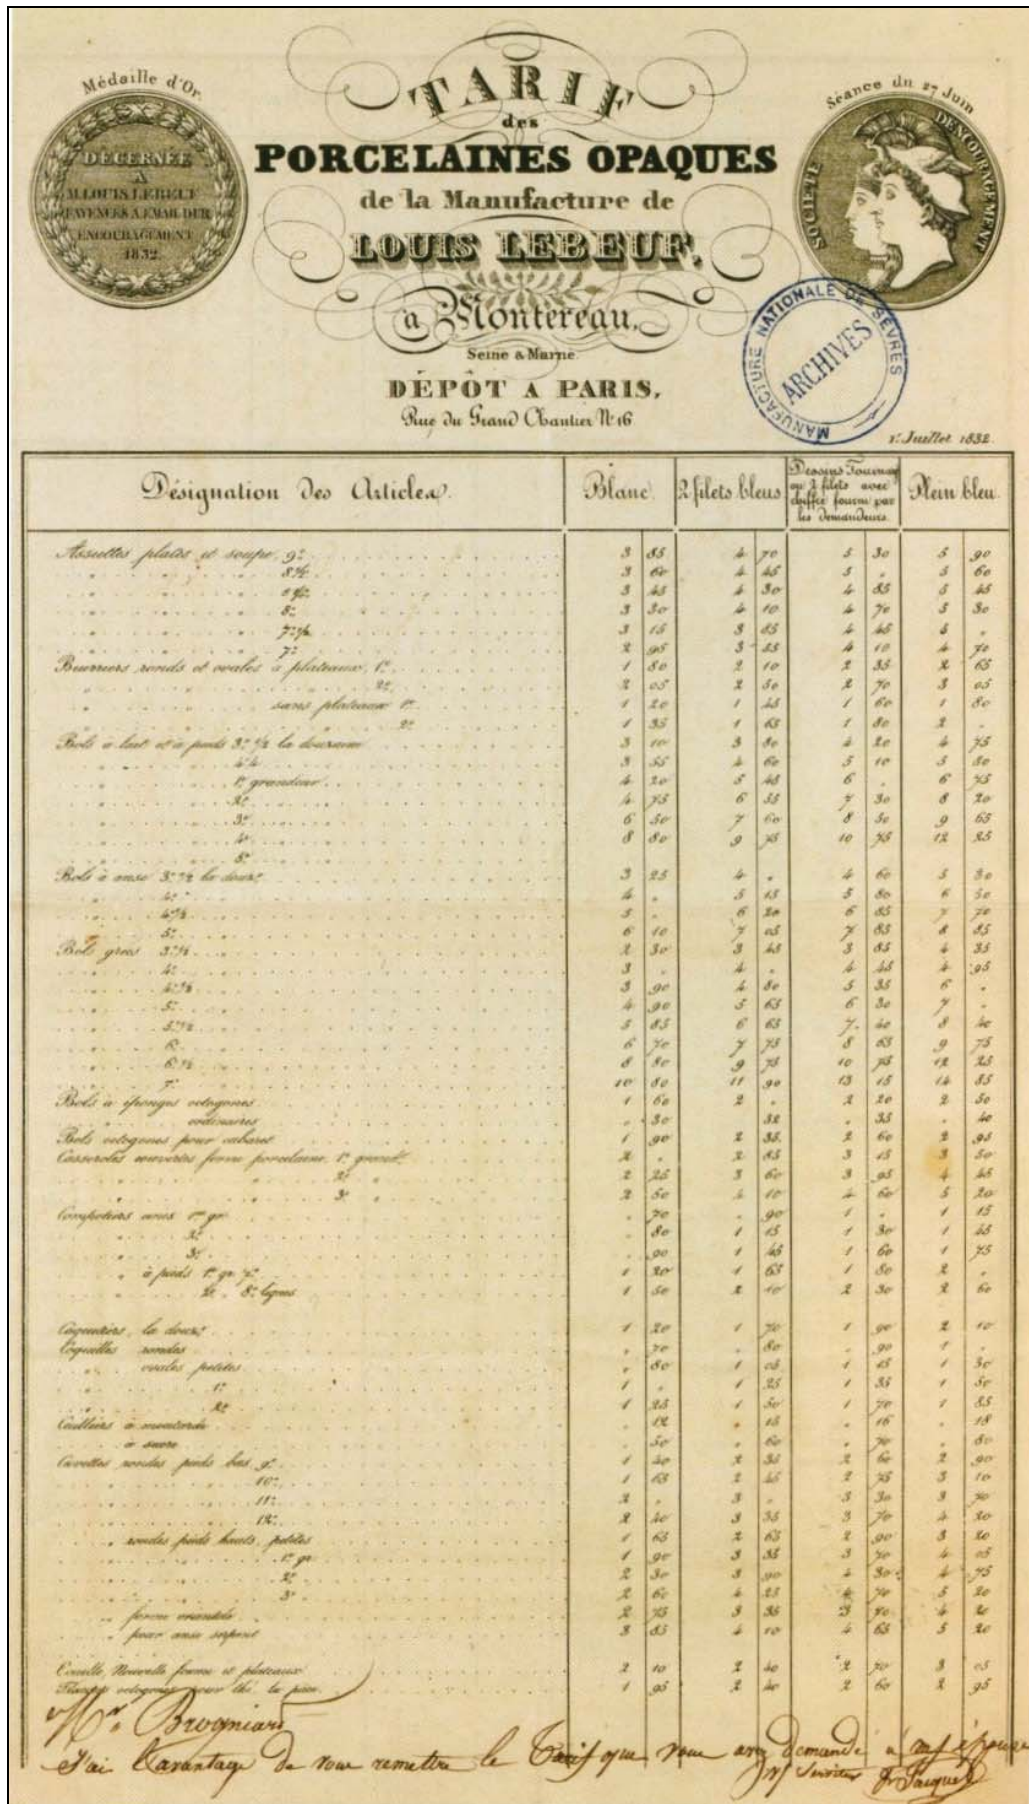 Médaille d'Or.
DÉCERNÉE
A
M. LOUIS LEBEUF
FAYENCES A EMAIL DUR
ENCOURAGEMENT
1832.
TARIF
des
PORCELAINES OPAQUES
de la Manufacture de
LOUIS LEBEUF,
à Montereau,
Seine & Marne
DÉPÔT A PARIS,
Rue du Grand Chantier N° 16
Séance du 27 Juin
SOCIETE DENCOURAGEMENT
MANUFACTURE NATIONALE DE SÈVRES
ARCHIVES
1r. Juillet 1832.
Désignation des Articles. Blanc. 2 filets bleus Dessins Tournay ou 2 filets avec chiffre fourni par les demandeurs. Plein bleu.
Assiettes plates et soupe 9e 3 85 4 70 5 30 5 90
" " " 8e 1/2 3 60 4 45 5 . 5 60
3 45 4 30 4 85 5 45
8e 3 30 4 10 4 70 5 30
7e 1/2 3 15 3 85 4 45 5 .
7e 2 95 3 55 4 10 4 70
Beurriers ronds et ovales à plateaux, 1e 1 80 2 10 2 35 2 65
2e 2 05 2 50 2 70 3 05
sans plateaux 1e 1 20 1 45 1 60 1 80
2e 1 35 1 65 1 80 2 .
Bols à lait et à pieds 3e 1/2 la douzaine 3 10 3 80 4 20 4 75
3 55 4 60 5 10 5 50
1e grandeur 4 20 5 45 6 . 6 75
4 75 6 35 7 30 8 20
3e 6 50 7 60 8 50 9 65
4e 8 80 9 75 10 75 12 25
5e
Bols à anse 3e 1/2 la douze 3 25 4 . 4 60 5 30
4e 4 . 5 15 5 80 6 50
4e 1/2 5 . 6 20 6 85 7 70
5e 6 10 7 05 7 85 8 85
Bols grecs 3e 1/2 2 30 3 45 3 85 4 35
4e 3 . 4 . 4 45 4 95
4e 1/2 3 90 4 80 5 35 6 .
5e 4 90 5 65 6 30 7 .
5e 1/2 5 85 6 65 7 40 8 40
6e 6 70 7 75 8 65 9 75
6e 1/2 8 80 9 75 10 75 12 25
7e 10 80 11 90 13 15 14 85
Bols à éponges octogones 1 60 2 . 2 20 2 50
" ordinaires . 30 . 32 . 35 . 40
Bols octogones pour cabaret 1 90 2 35 2 60 2 95
Casseroles couvertes forme porcelaine, 1e grandr 2 . 2 85 3 15 3 50
2e 2 25 3 60 3 95 4 45
3e 2 50 4 10 4 60 5 20
Compotiers unis 1e gr . 70 . 90 1 . 1 15
. 80 1 15 1 30 1 45
3e . 90 1 45 1 60 1 75
" à pieds 1e gr 7e 1 20 1 65 1 80 2 .
2e " 8e lignes 1 50 2 10 2 30 2 60
Coquetiers, la douze 1 20 1 70 1 90 2 10
Coquilles rondes . 70 . 80 . 90 1 .
" ovales petites . 80 1 05 1 15 1 30
1e 1 . 1 25 1 35 1 50
2e 1 25 1 50 1 70 1 85
Cuilliers à moutarde . 12 . 15 . 16 . 18
" à sucre . 50 . 60 . 70 . 80
Cuvettes rondes pieds bas 9e 1 40 2 35 2 60 2 90
10e 1 65 2 45 2 75 3 10
11e 2 . 3 . 3 30 3 70
12e 2 40 3 35 3 70 4 20
" rondes pieds hauts, petites 1 65 2 65 2 90 3 20
1e gr 1 90 3 35 3 70 4 05
2e 2 30 3 90 4 30 4 75
3e 2 60 4 25 4 70 5 20
" forme 2 75 3 35 3 70 4 20
" pour anse serpent 3 85 4 10 4 65 5 20
Ecuelle, Nouvelle forme et plateaux 2 10 2 40 2 70 3 05
octogones pour thé la pièce 1 95 2 40 2 60 2 95
Mr. Brogniard
J'ai l'avantage de vous remettre le Tarif que vous avez demandé à
Serviteur Jacquet